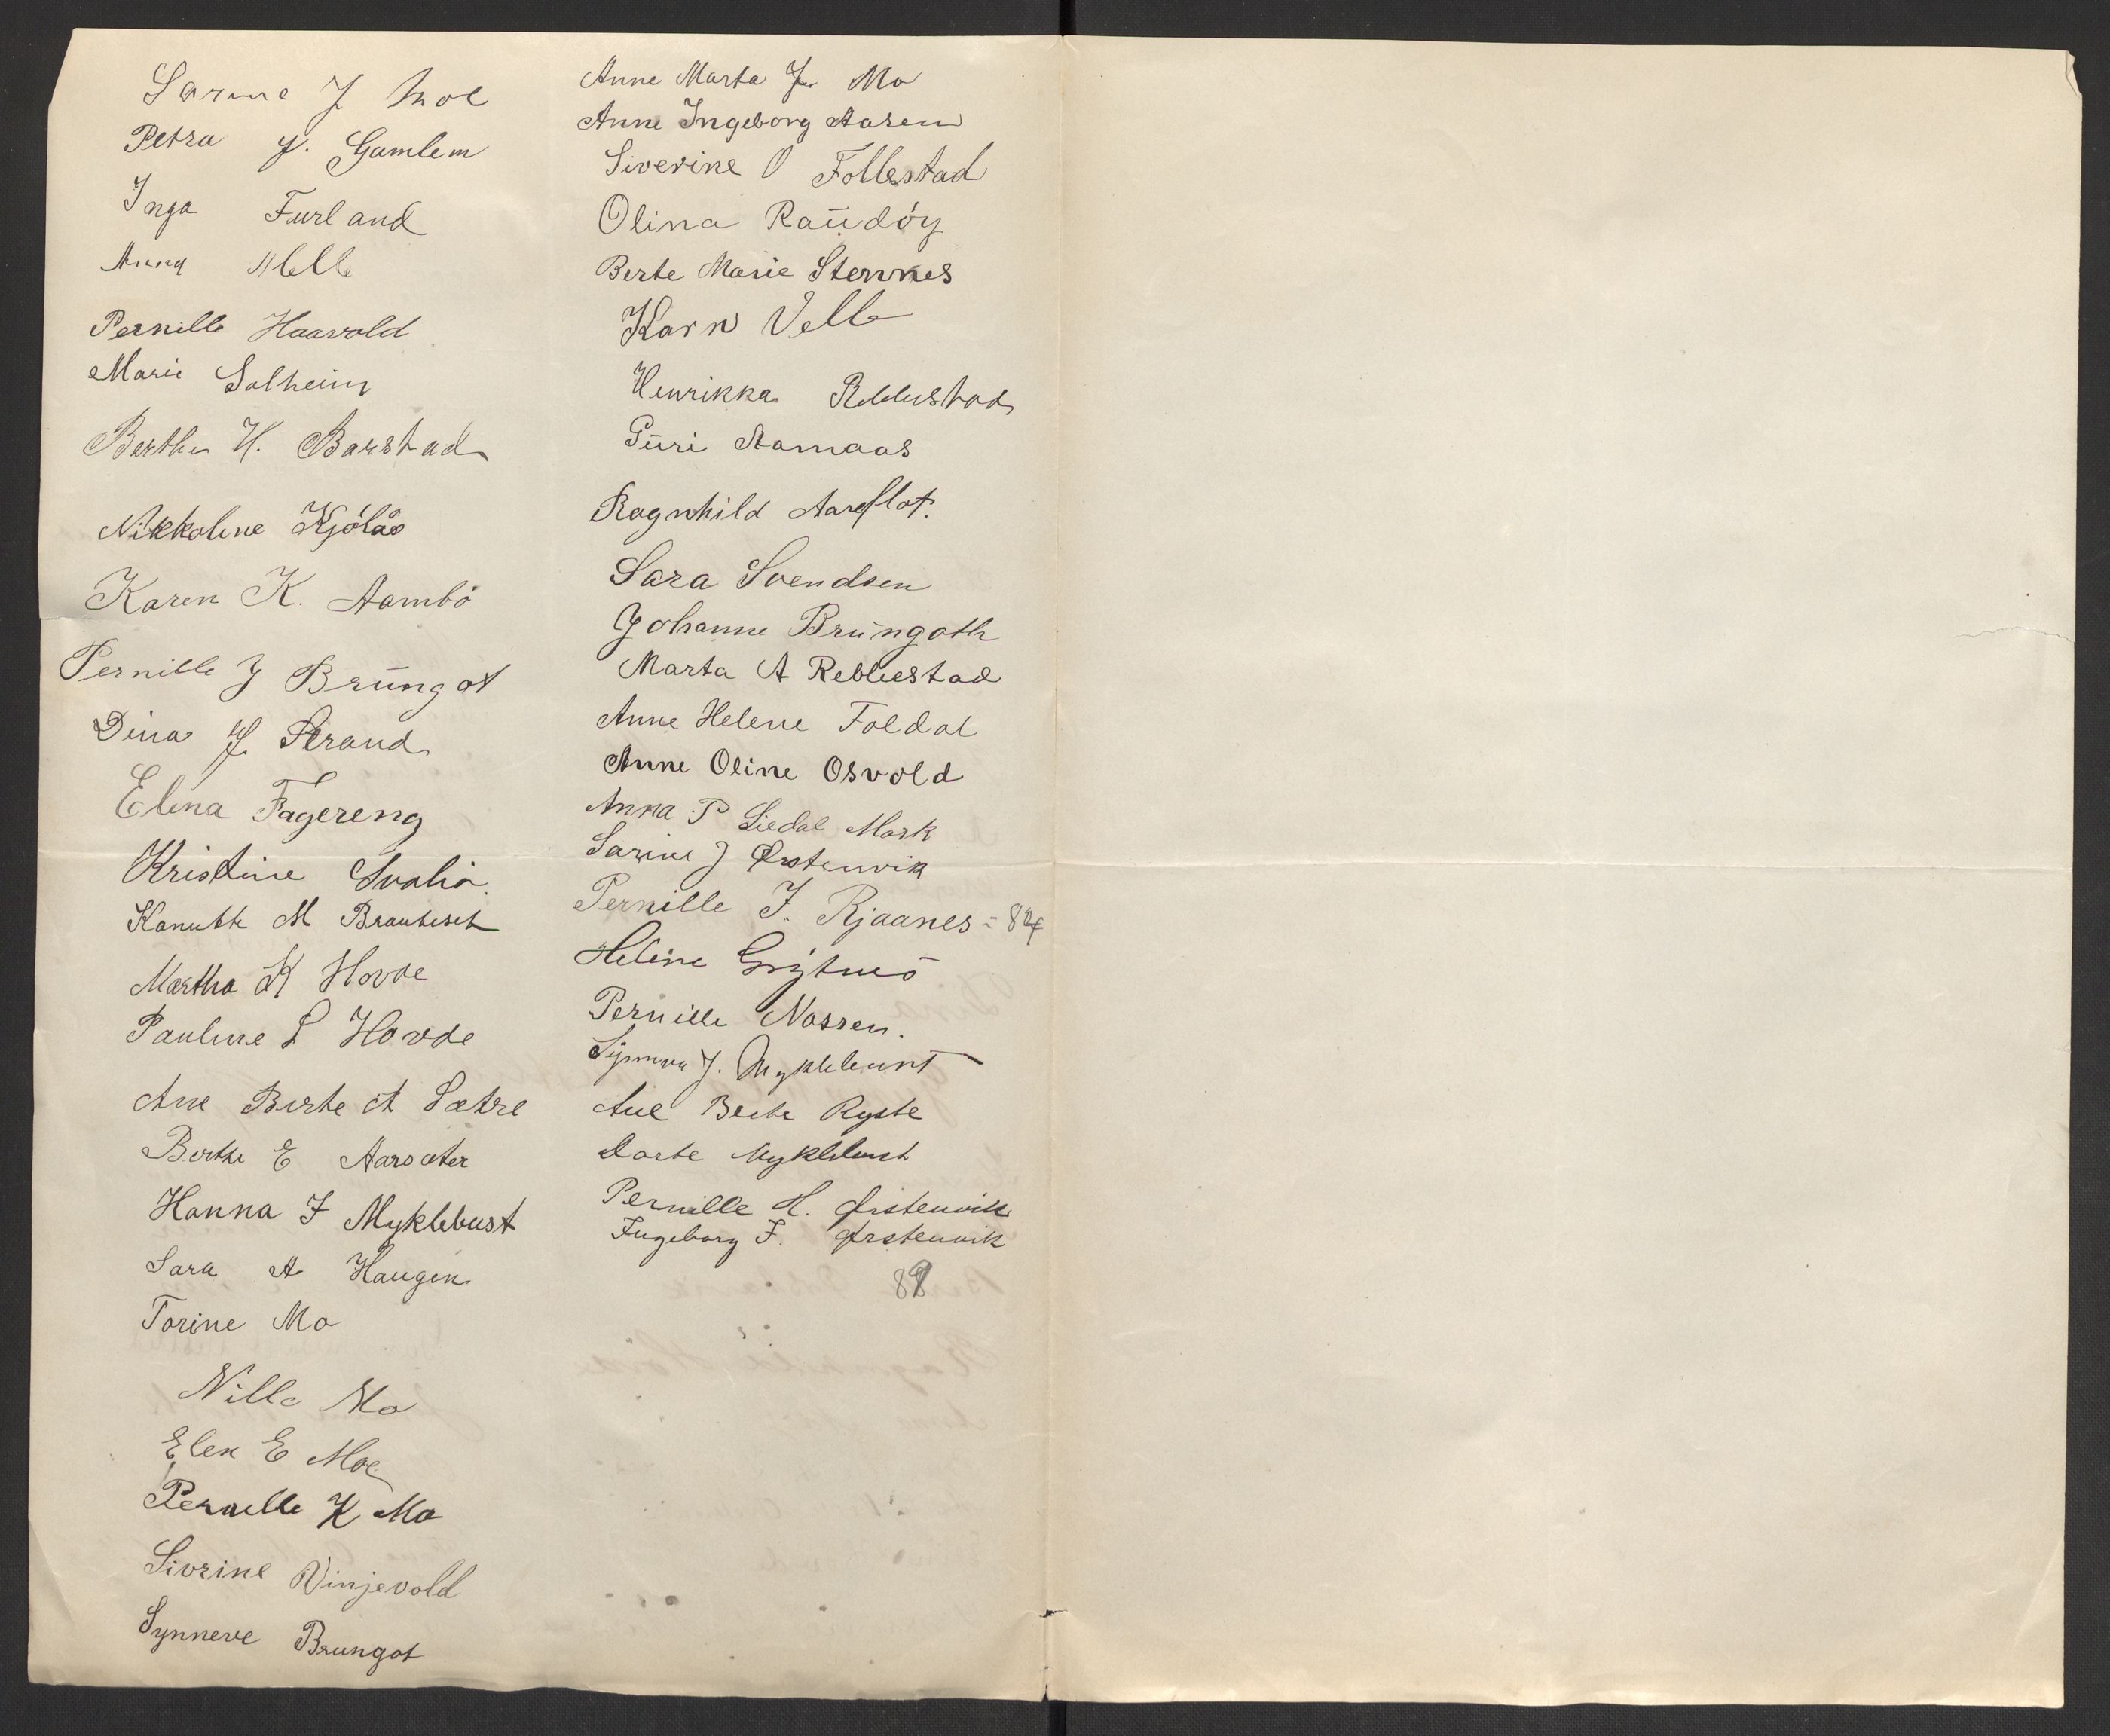 Sarine J Moe
Petra J. Gamlem
Inga Furland
Anna Melle
Pernille Haavold
Marie Solheim
Berthe H. Barstad
Nikkoline Kjólås
Karen K. Aambö
Pernille J Brŭngot
Dina J. Strand
Elina Fagereng
Kristine Svalia.
Kanutte M Brauteset
Martha K Hovde
Pauline L Hovde
Ane Berte A Sætre
Berthe E Aarsæter
Hanna I Myklebust
Sara A Haugen
Torine Mo
Nille Mo
Elen E Moe
Pernille K Mo
Sivrine Vinjevold
Synneve Brungot
Anne Marta J. Mo
Anne Ingeborg Aasen
Siverine O Follestad
Olina Raŭdóy
Berte Marie Stennes
Karn Velle
Henrikka Rebbestad
Gŭri Aamaas
Ragnhild Aarflot.
Sara Svendsen
Johanne Brŭngoth
Marta A Rebbestad
Anne Helene Foldal
Anne Oline Osvold
Anna P Liedal Mork
Sarine J Ørstenvik
Pernille I. Rjaanes = 84
Heline Grytnes
Pernille Nossen.
Synneva J. Myklebust
Ane Berte Ryste
Dorte Myklebust
Pernille H. Ørstenvik
Ingeborg I. Ørstenvik